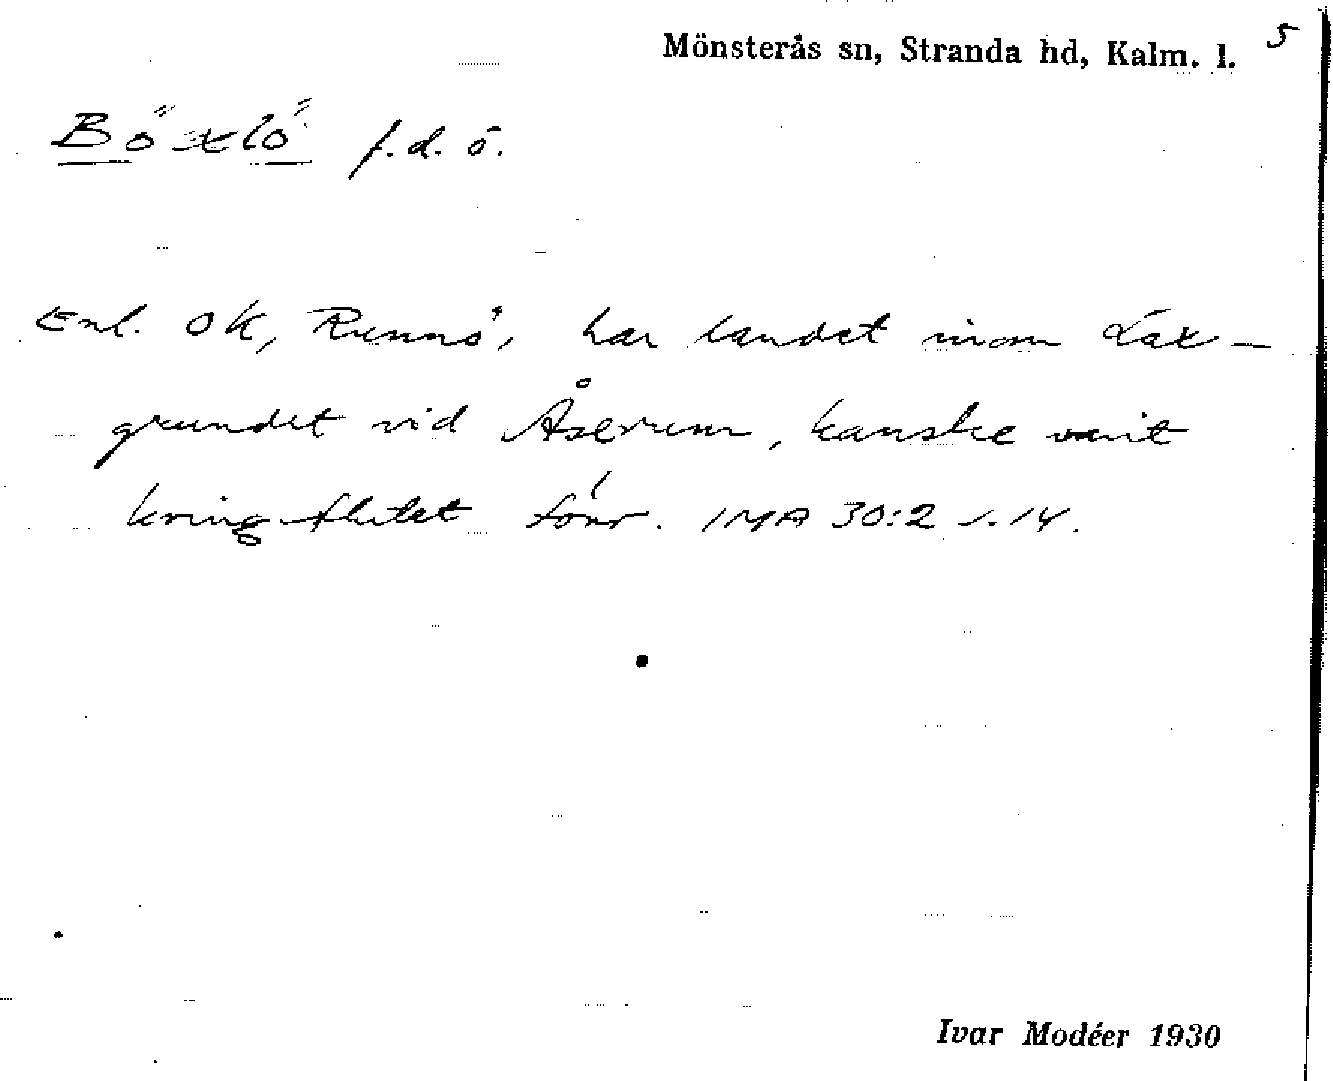 Mönsterås sn, Stranda hd, Kalm. l. 5
Böxlö f.d. ö.
Enl. OK, Runnö, har landet inom Lax-
grundet vid Åserum, kanske varit
kringflutet förr. IMA 30:2 s. 14.
Ivar Modéer 1930